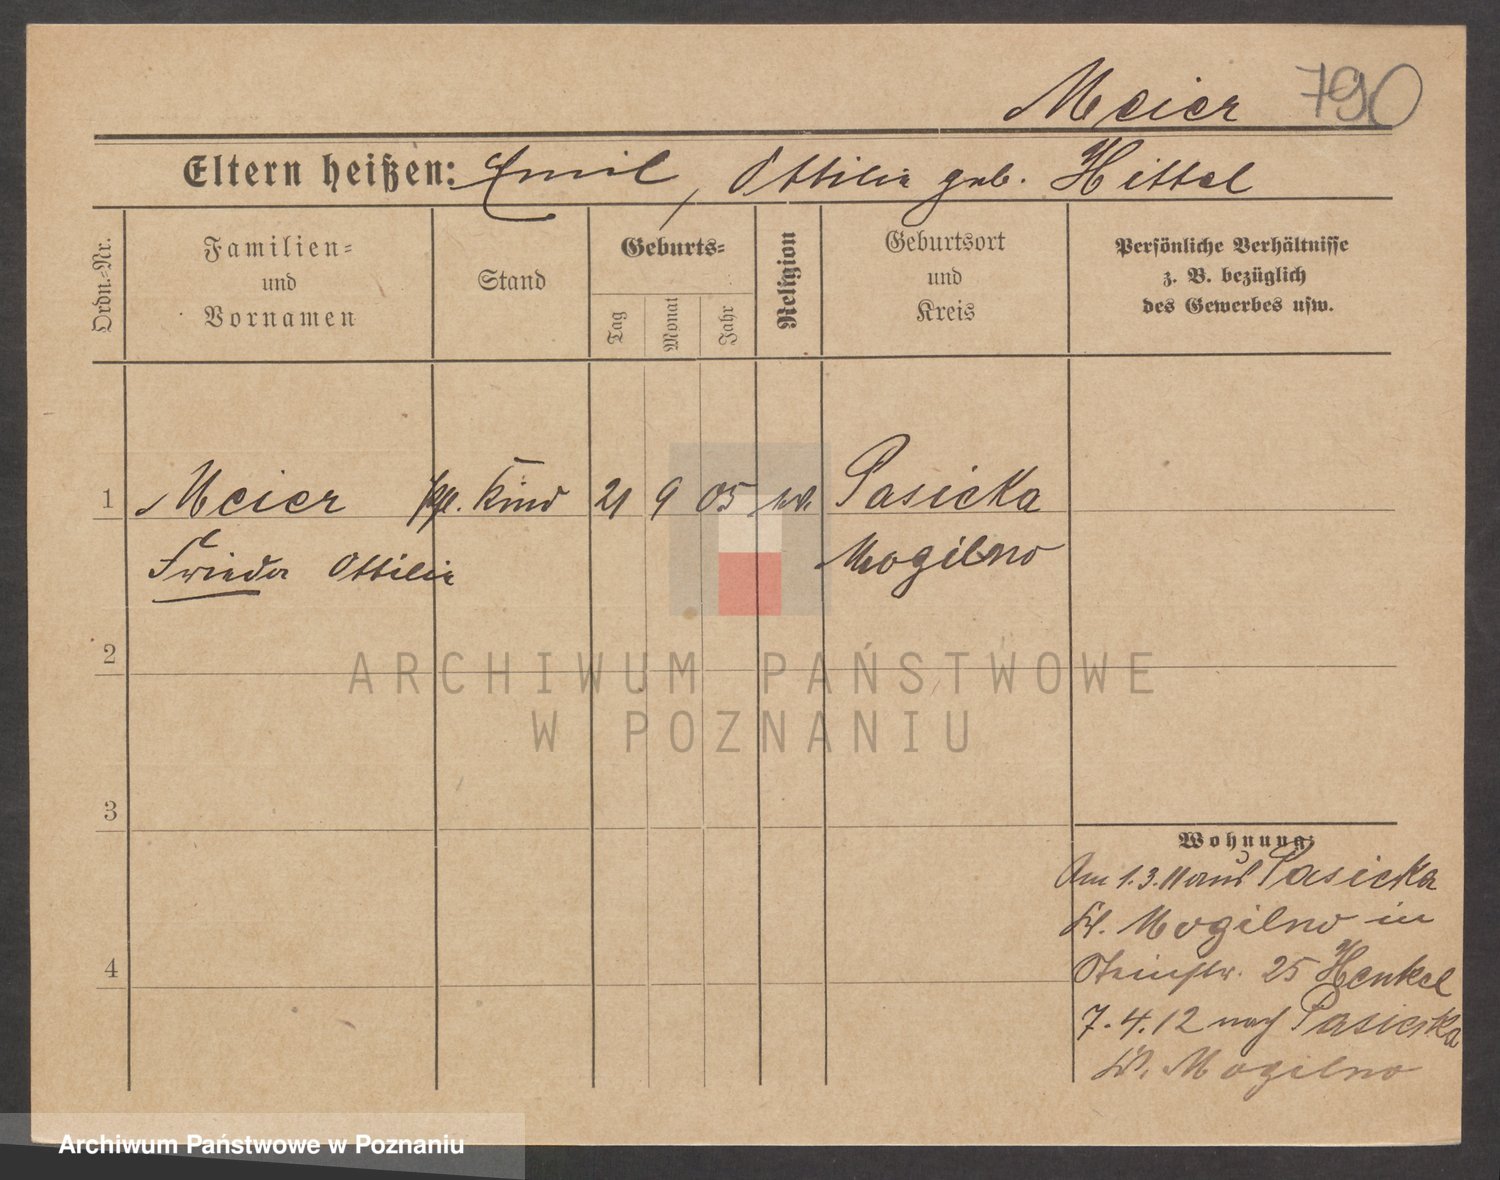 Meier 790
Eltern heißen: Emil, Ottilie geb. Hittel
Ordn.-Nr.
Familien-
und
Vornamen
Stand
Geburts-
Tag
Monat
Jahr
Religion
Geburtsort
und
Kreis
Persönliche Verhältnisse
z. B. bezüglich
des Gewerbes usw.
1 Meier Kind 21 9 05 ev. Pasieka
Frieda Ottilie Mogilno
2
3
4
Wohnung:
Am 1.3.11 aus Pasieka
Kr. Mogilno in
Steinstr. 25 Henkel
7.4.12 nach Pasieka
Kr. Mogilno
ARCHIWUM PAŃSTWOWE
W POZNANIU
Archiwum Państwowe w Poznaniu